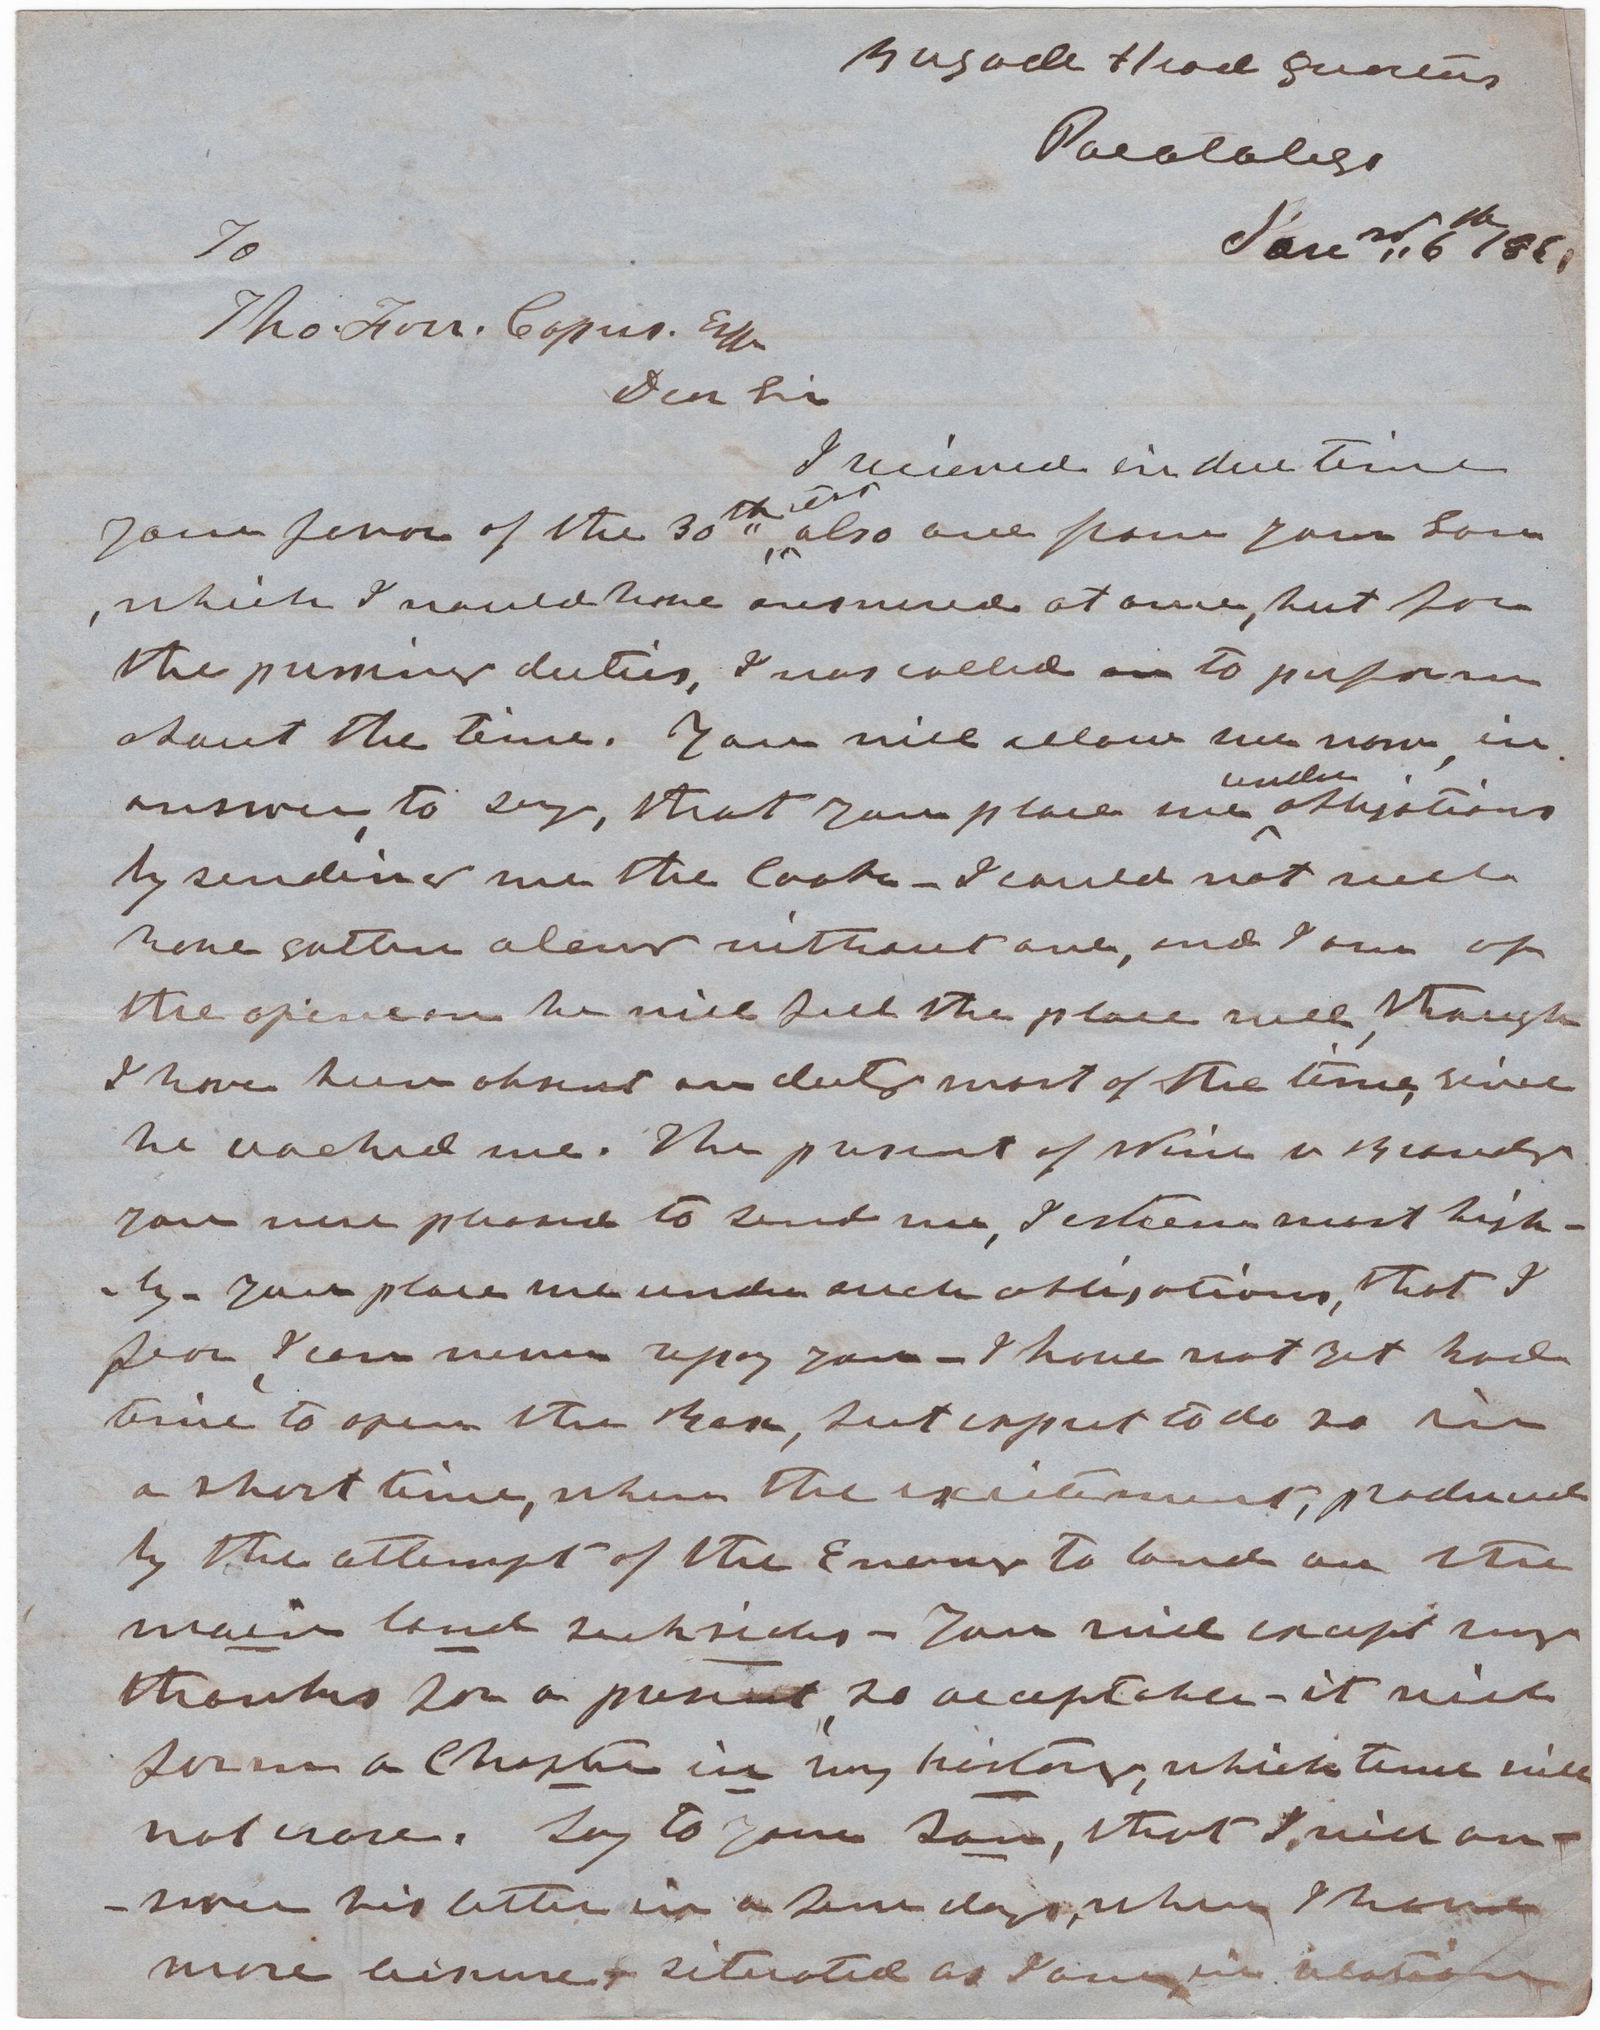 Brigade Head Quarters
Pocotaligo
Jany 6th 186
To
Tho. Farr. Capers. Esqr
Dear Sir
I recieved in due time
your favor of the 30th also one from your Son
, which I would have answered at once, but for
the pressing duties, I was called on to perform
about the time. You will allow me now, in
answer, to say, that you place me under obligations
by sending me the Cook - I could not well
have gotten along without one, and I am of
the opineon he will fill the place well, though
I have been absent on duty most of the time, since
he reached me. The present of Wine & Brandy
you were pleased to send me, I esteem most high-
-ly - you place me under such obligations, that I
fear, I can never repay you - I have not yet had
time to open the Box, but expect to do so in
a short time, when the excitement, produced
by the attempt of the Enemy to land on the
main land subsides - You will except my
thanks for a present, so acceptable - it will
form a Chapter in my history, which time will
not erase. Say to your son, that I will an-
-swer his letter in a few days, when I have
more leisure, situated as I am, in relation